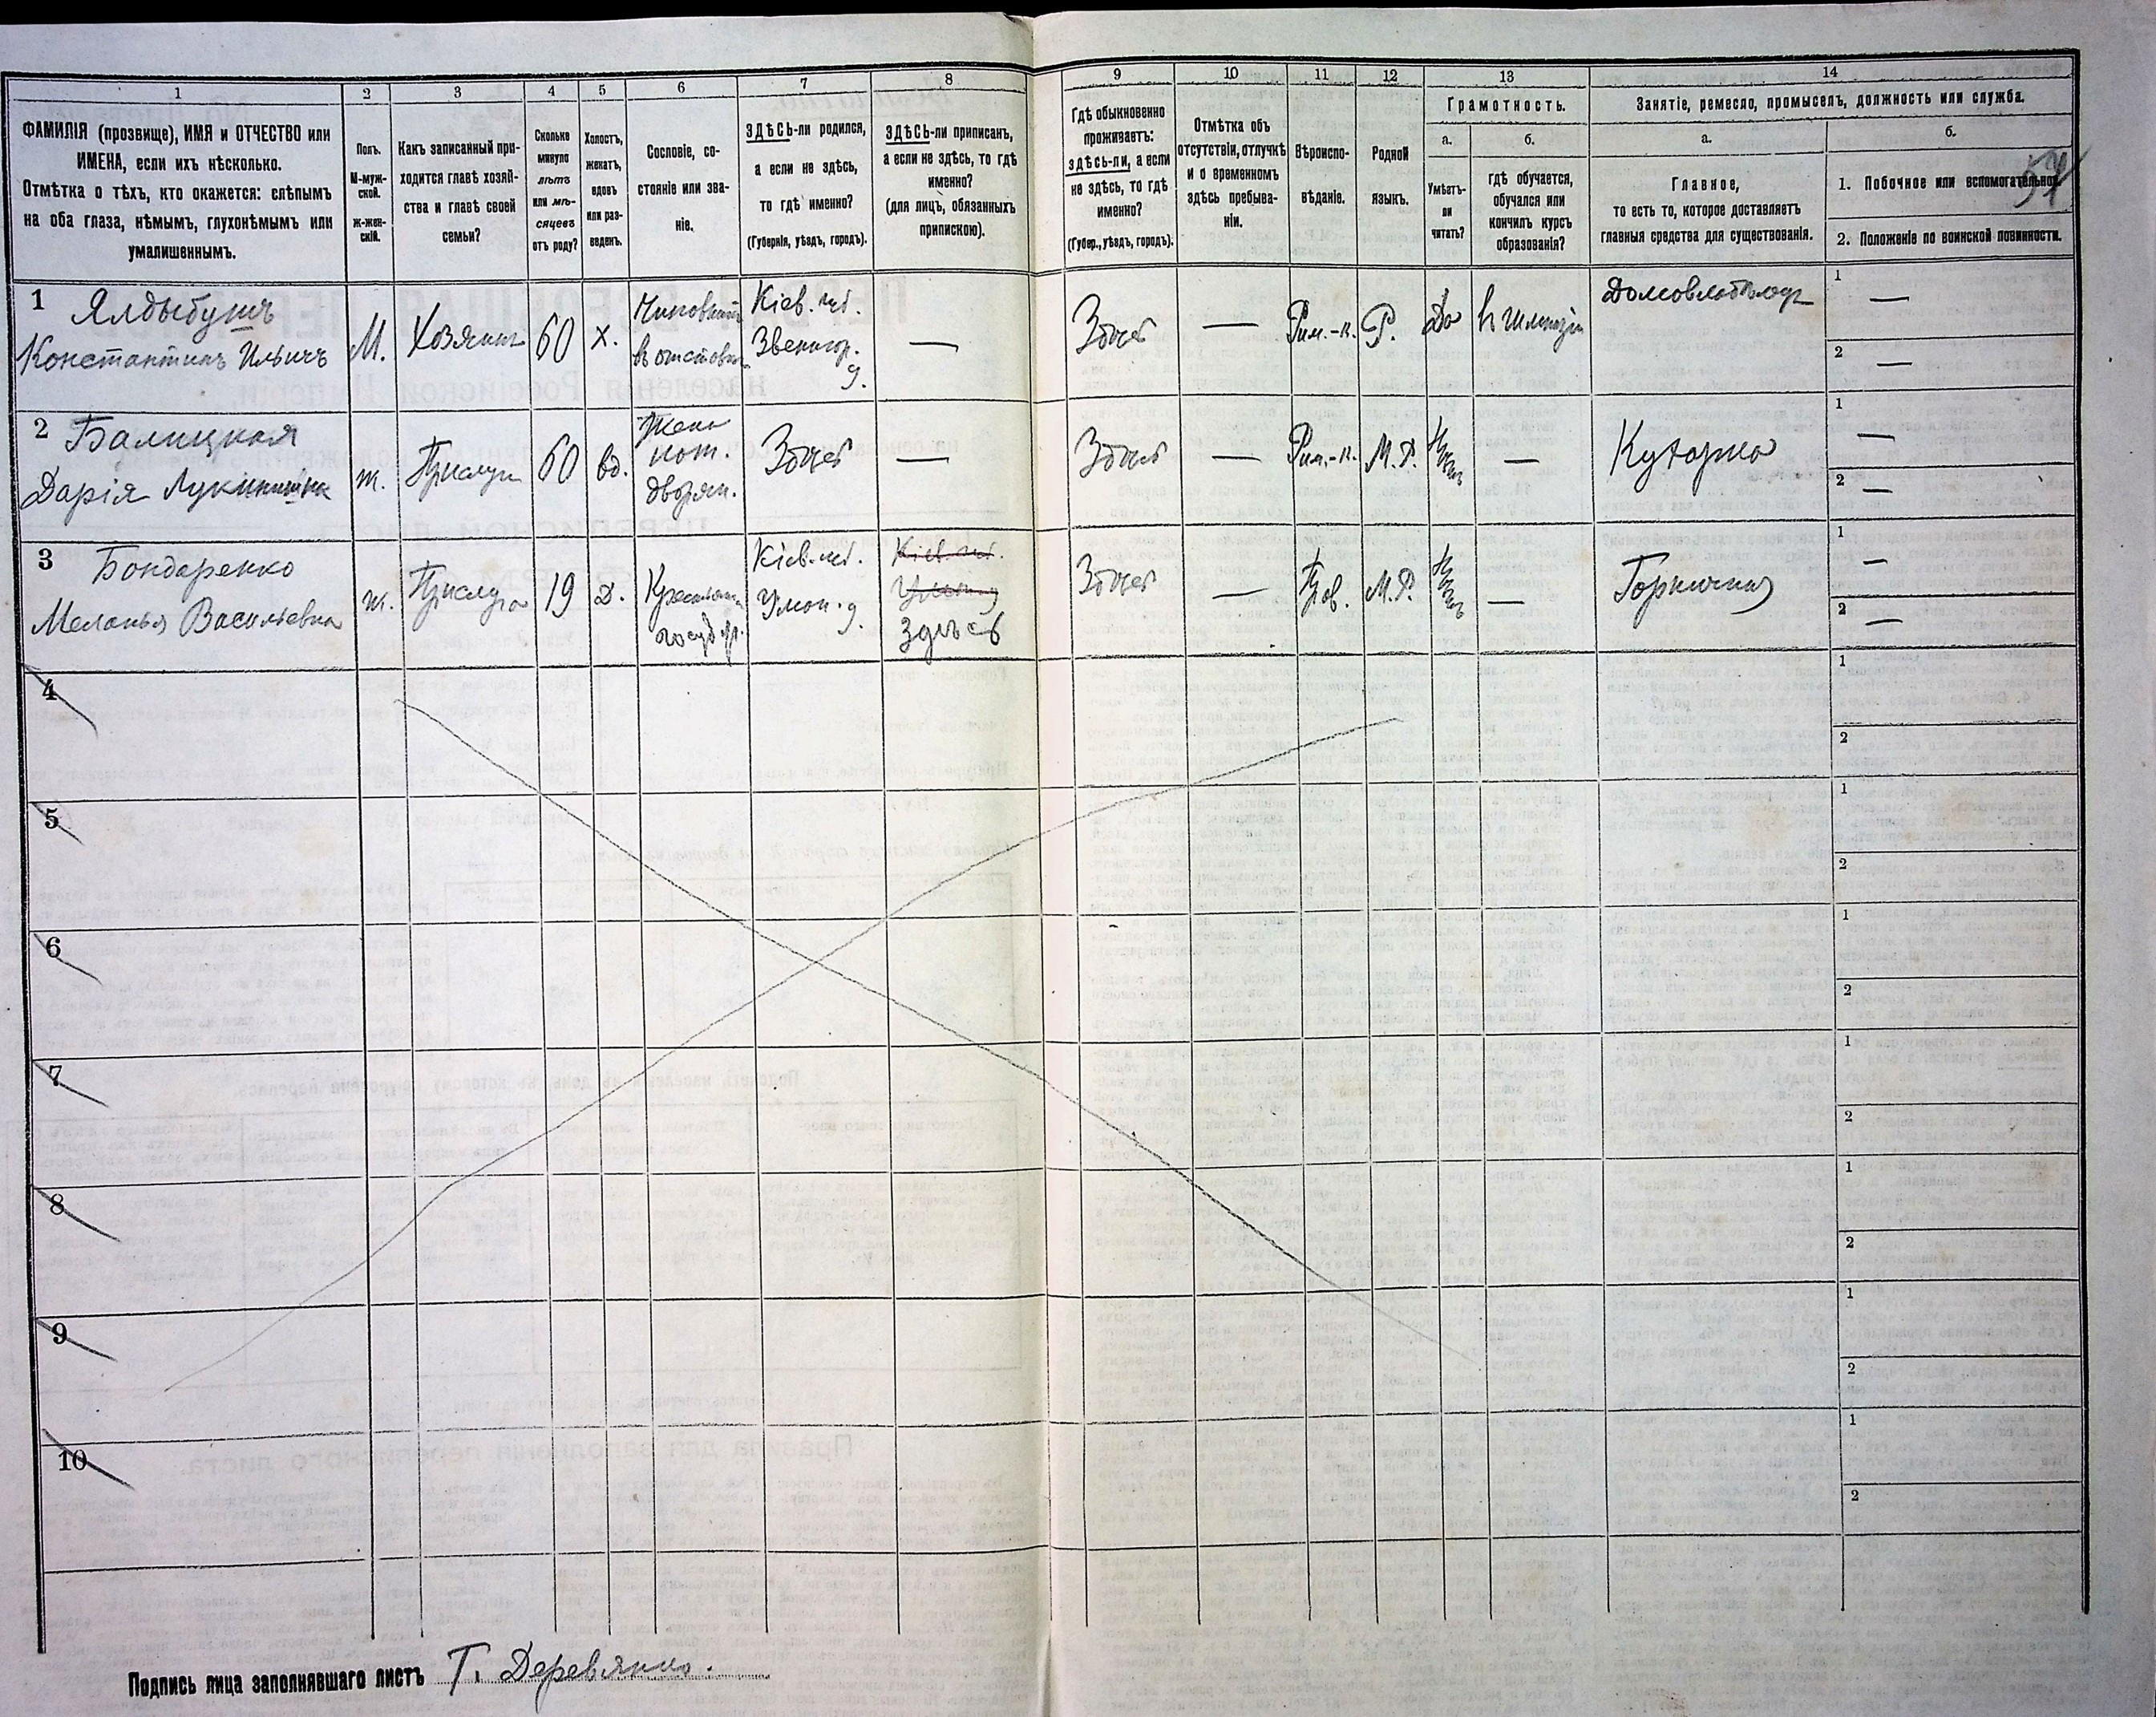 1
2
3
4
5
6
7
8
9
10
11
12
13
14
ФАМИЛІЯ (прозвище), ИМЯ и ОТЧЕСТВО или
ИМЕНА, если ихъ нѣсколько.
Отмѣтка о тѣхъ, кто окажется: слѣпымъ
на оба глаза, нѣмымъ, глухонѣмымъ или
умалишеннымъ.
Полъ.
М-муж-
ской.
ж-жен-
скій.
Какъ записанный при-
ходится главѣ хозяй-
ства и главѣ своей
семьи?
Сколько
минуло
лѣтъ
или мѣ-
сяцевъ
отъ роду?
Холостъ,
женатъ,
вдовъ
или раз-
веденъ.
Сословіе, со-
стояніе или зва-
ніе.
ЗДѢСЬ-ли родился,
а если не здѣсь,
то гдѣ именно?
(Губернія, уѣздъ, городъ).
ЗДѢСЬ-ли приписанъ,
а если не здѣсь, то гдѣ
именно?
(для лицъ, обязанныхъ
припискою).
Гдѣ обыкновенно
проживаетъ:
здѣсь-ли, а если
не здѣсь, то гдѣ
именно?
(Губер., уѣздъ, городъ).
Отмѣтка объ
отсутствіи, отлучкѣ
и о временномъ
здѣсь пребыва-
ніи.
Вѣроиспо-
вѣданіе.
Родной
языкъ.
Грамотность.
а.
Умѣетъ-
ли
читать?
б.
гдѣ обучается,
обучался или
кончилъ курсъ
образованія?
Занятіе, ремесло, промыселъ, должность или служба.
а.
Главное,
то есть то, которое доставляетъ
главныя средства для существованія.
б.
1. Побочное или вспомогательное.
2. Положеніе по воинской повинности.
1 Ялдыбушъ
Константинъ Ильичъ
М.
Хозяинъ
60
х.
Чиновникъ
въ отставкѣ
Кіев. губ.
Звенигор.
у.
—
Здѣсь
—
Рим.-к.
Р.
Да
Домовладѣлецъ
1 —
2 —
2 Балицкая
Дарія Лукинишна
ж.
Прислуга
60
вд.
Жена
пот.
дворян.
Здѣсь
—
Здѣсь
—
Рим.-к.
М.Р.
Нѣтъ
—
Кухарка
1 —
2 —
3 Бондаренко
Меланья Васильевна
ж.
Прислуга
19
д.
Кіев. губ.
Уман. у.
Кіев. губ.
Уман. у.
Здѣсь
Здѣсь
—
Прав.
М.Р.
Нѣтъ
—
Горничная
1 —
2 —
4
1
2
5
1
2
6
1
2
7
1
2
8
1
2
9
1
2
10
1
2
Подпись лица заполнявшаго листъ Т. Деревянко.